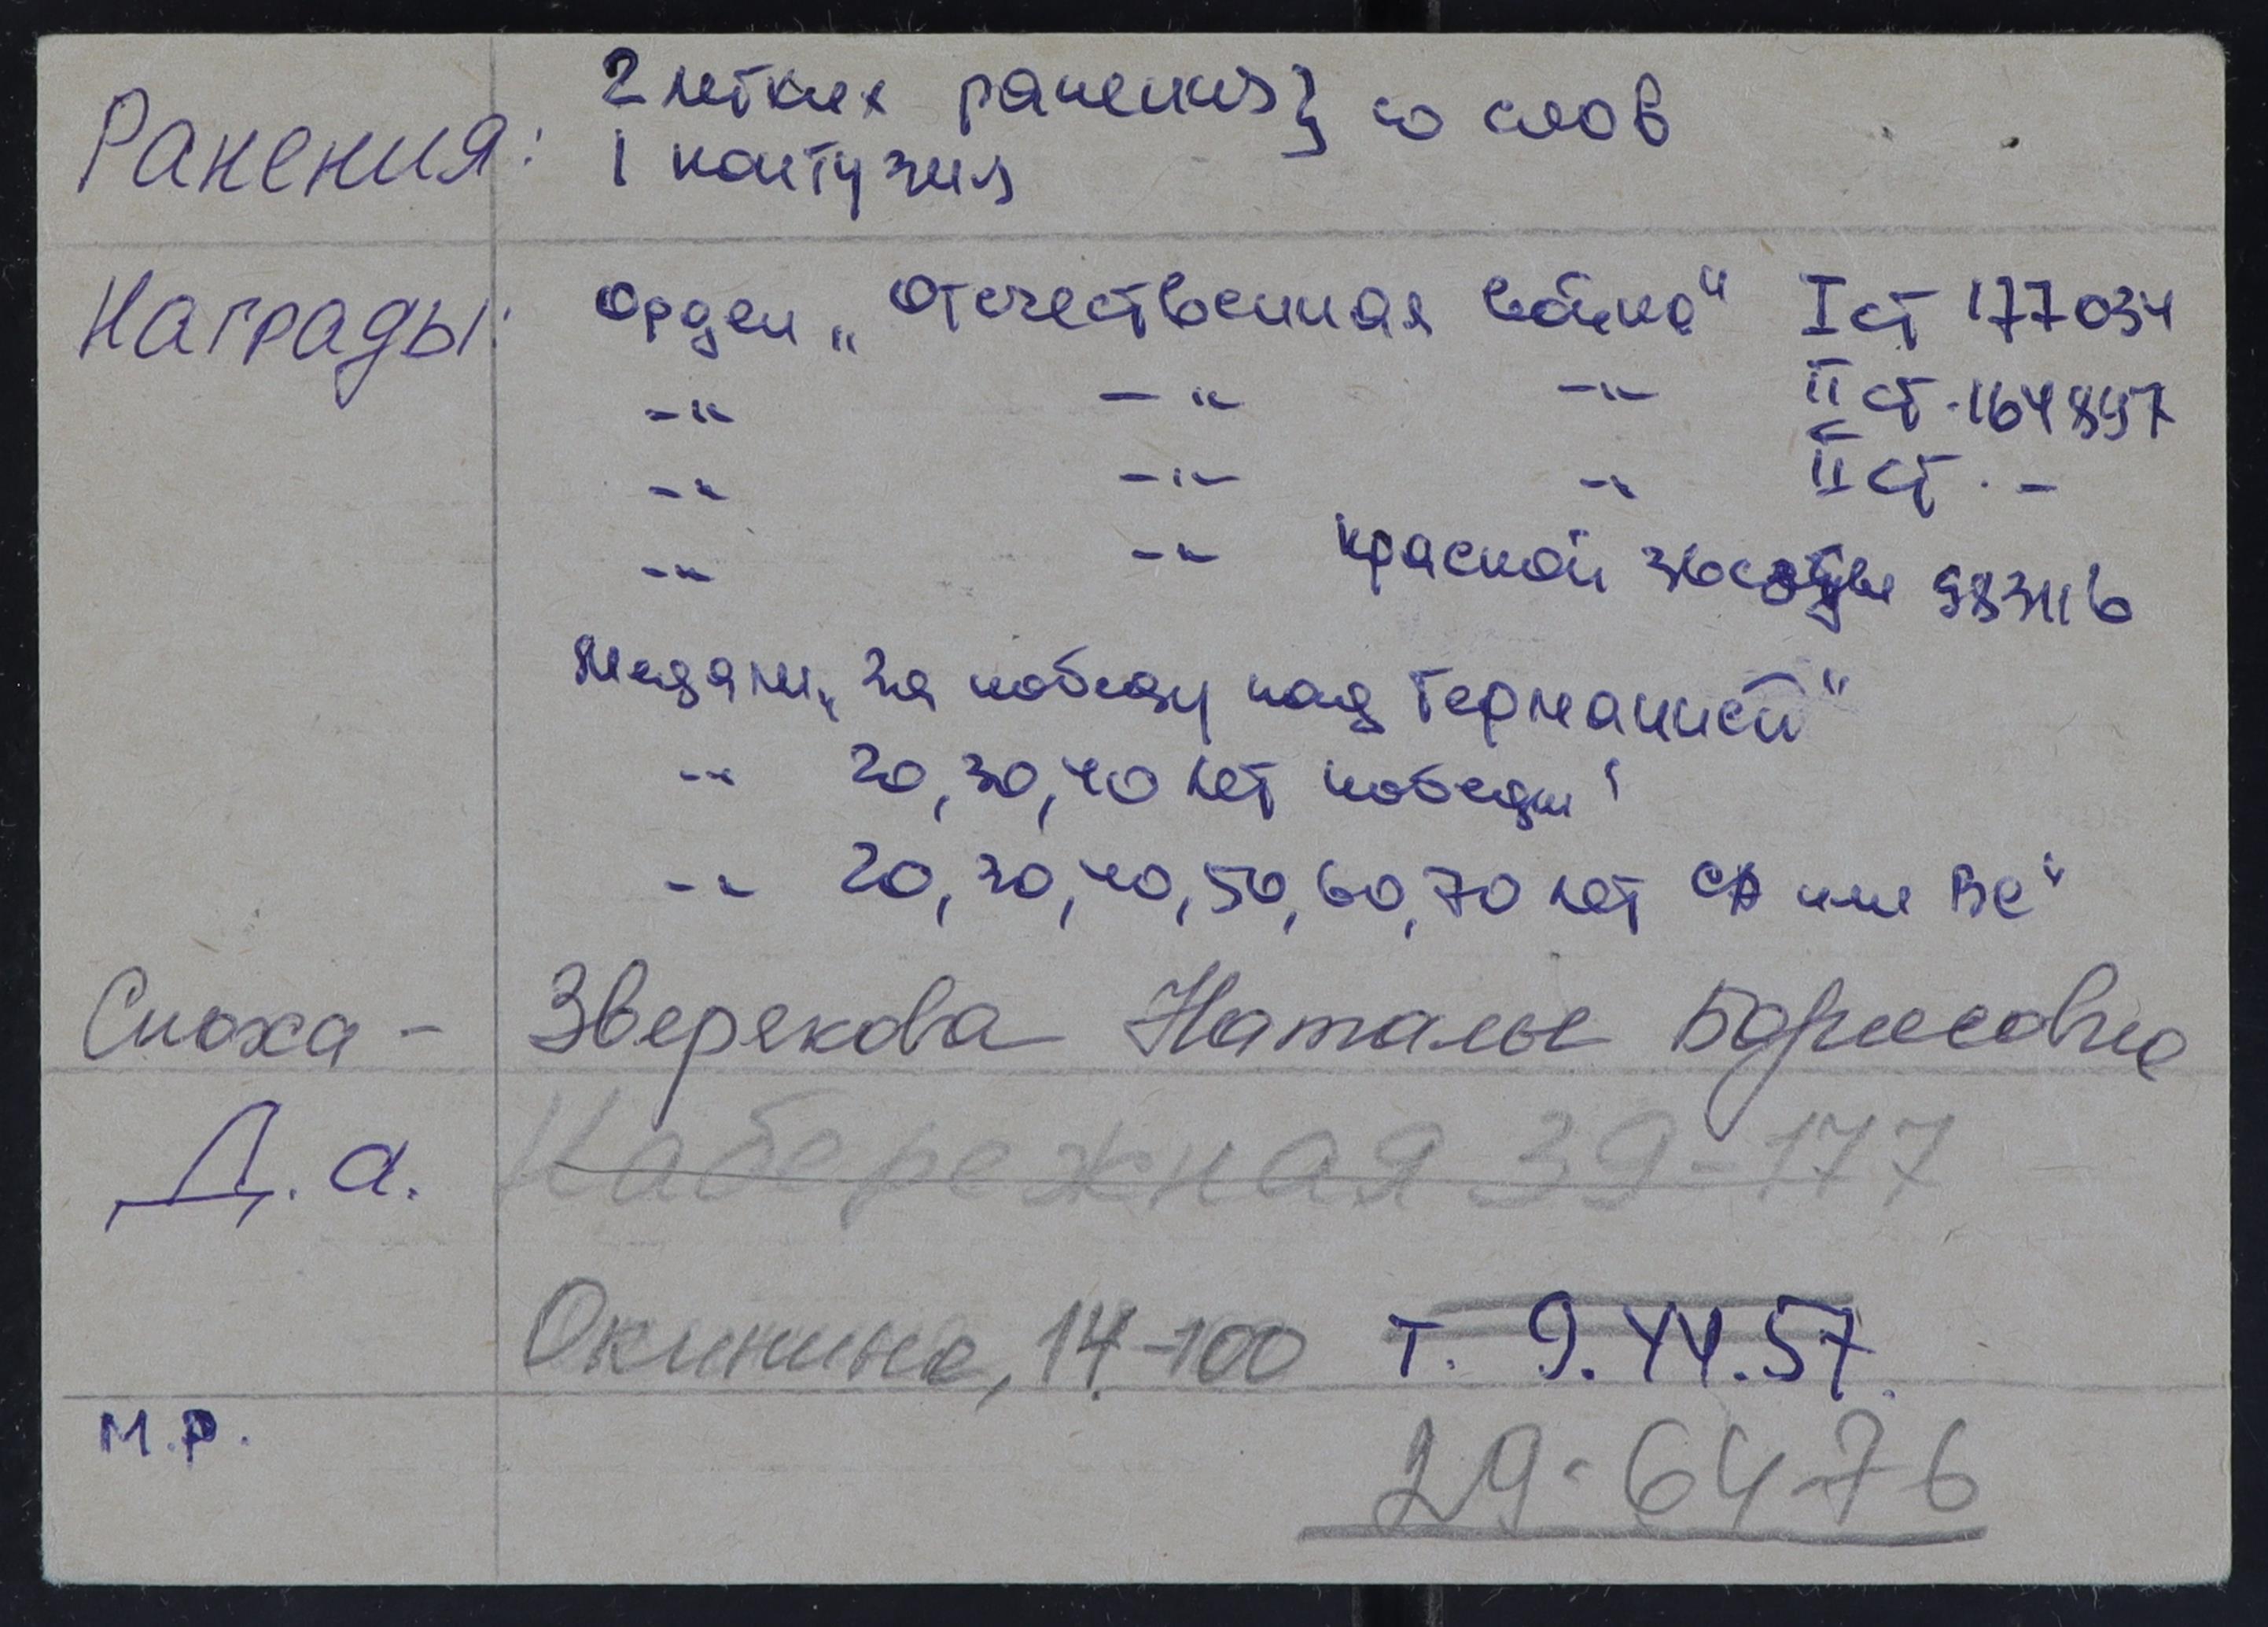 Ранения: 2 легких ранения } со слов
1 контузия
Награды: Орден „Отечественная война" I ст 177034
-"- -"- -"- II ст. 164897
-"- -"- -"- II ст. -
-"- -"- Красной звезды 983116
Медали „За победу над Германией"
-"- 20, 30, 40 лет победы"
-"- 20, 30, 40, 50, 60, 70 лет СА или ВС"
Сноха - Зверекова Наталье Борисовна
Д.а. Набережная 39-177
Окинина, 14-100 т. 9.44.57.
29-64-76
М.Р.